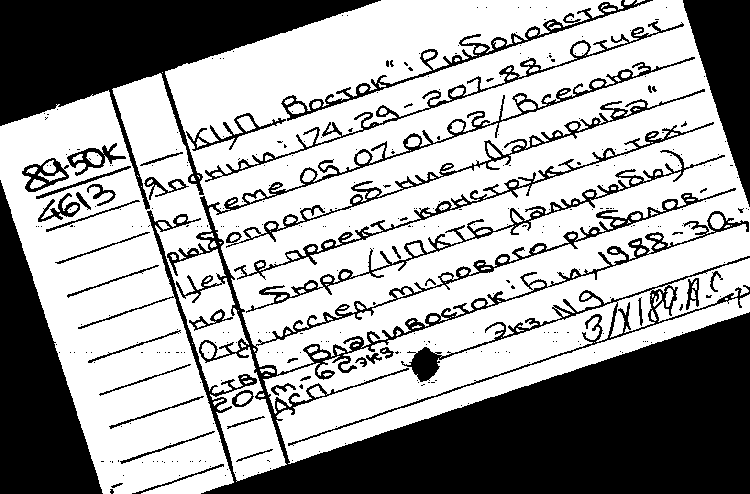 89-50К
4613
КЦП „Восток“: Рыболовство
Японии: 174.29-207-88: Отчет
по теме 05.07.01.02/Всесоюз.
рыбопром. об-ние „Дальрыба“.
Центр. проект.-конструкт. и тех-
нол. бюро (ЦПКТБ Дальрыбы).
Отд. исслед. мирового рыболов-
ства. - Владивосток: Б.и., 1988.-30с.;
20см.-62экз. Экз. N9.
ДСП. 3/X189.А.С.